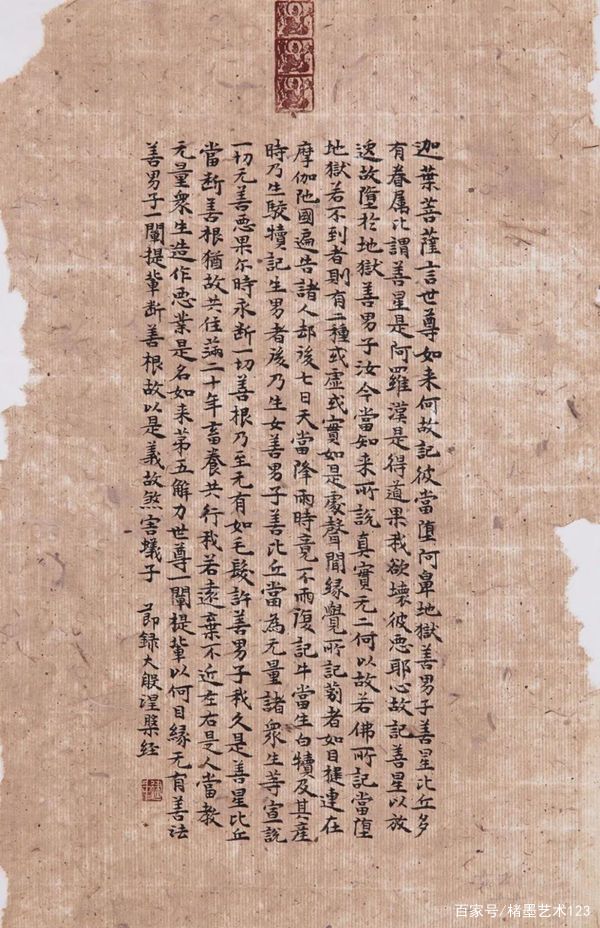 迦葉菩薩言世尊如来何故記彼當墮阿鼻地獄善男子善星比丘多
有眷属比謂善星是阿羅漢是得道果我欲壞彼悪耶心故記善星以放
逸故墮於地獄善男子汝今當知来所說真實无二何以故若佛所記當墮
地獄若不到者則有二種或虛或實如是處聲聞緣覺所記莂者如目揵連在
摩伽陁國遍告諸人却後七日天當降雨時竟不雨復記牛當生白犢及其產
時乃生駮犢記生男者後乃生女善男子善比丘當為无量諸衆生等宣說
一切无善悪果尒時永断一切善根乃至无有如毛髮許善男子我久是善星比丘
當断善根猶故共住滿二十年畜養共行我若遠棄不近左右是人當教
无量衆生造作悪業是名如来苐五解力世尊一闡提輩以何目緣无有善法
善男子一闡提輩断善根故以是義故煞害蟻子 節録大般涅槃経
百家号/楮墨艺术123